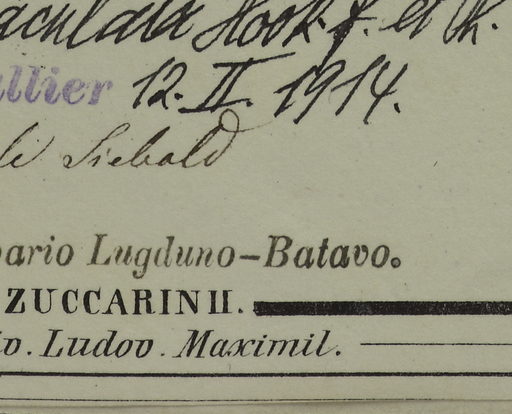 aculata Hook. f. et Th.
llier 12. II. 1914.
li Siebold
ario Lugduno-Batavo.
ZUCCARINII.
iv. Ludov. Maximil.